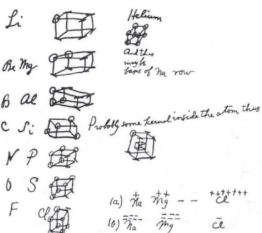 Li
Helium
And this
may be
base of Ne row
Be Mg
B Al
C Si
Probably some kernel inside the atom thus
N P
O S
F Cl
(a) Na Mg - - Cl
(b) Na Mg Cl